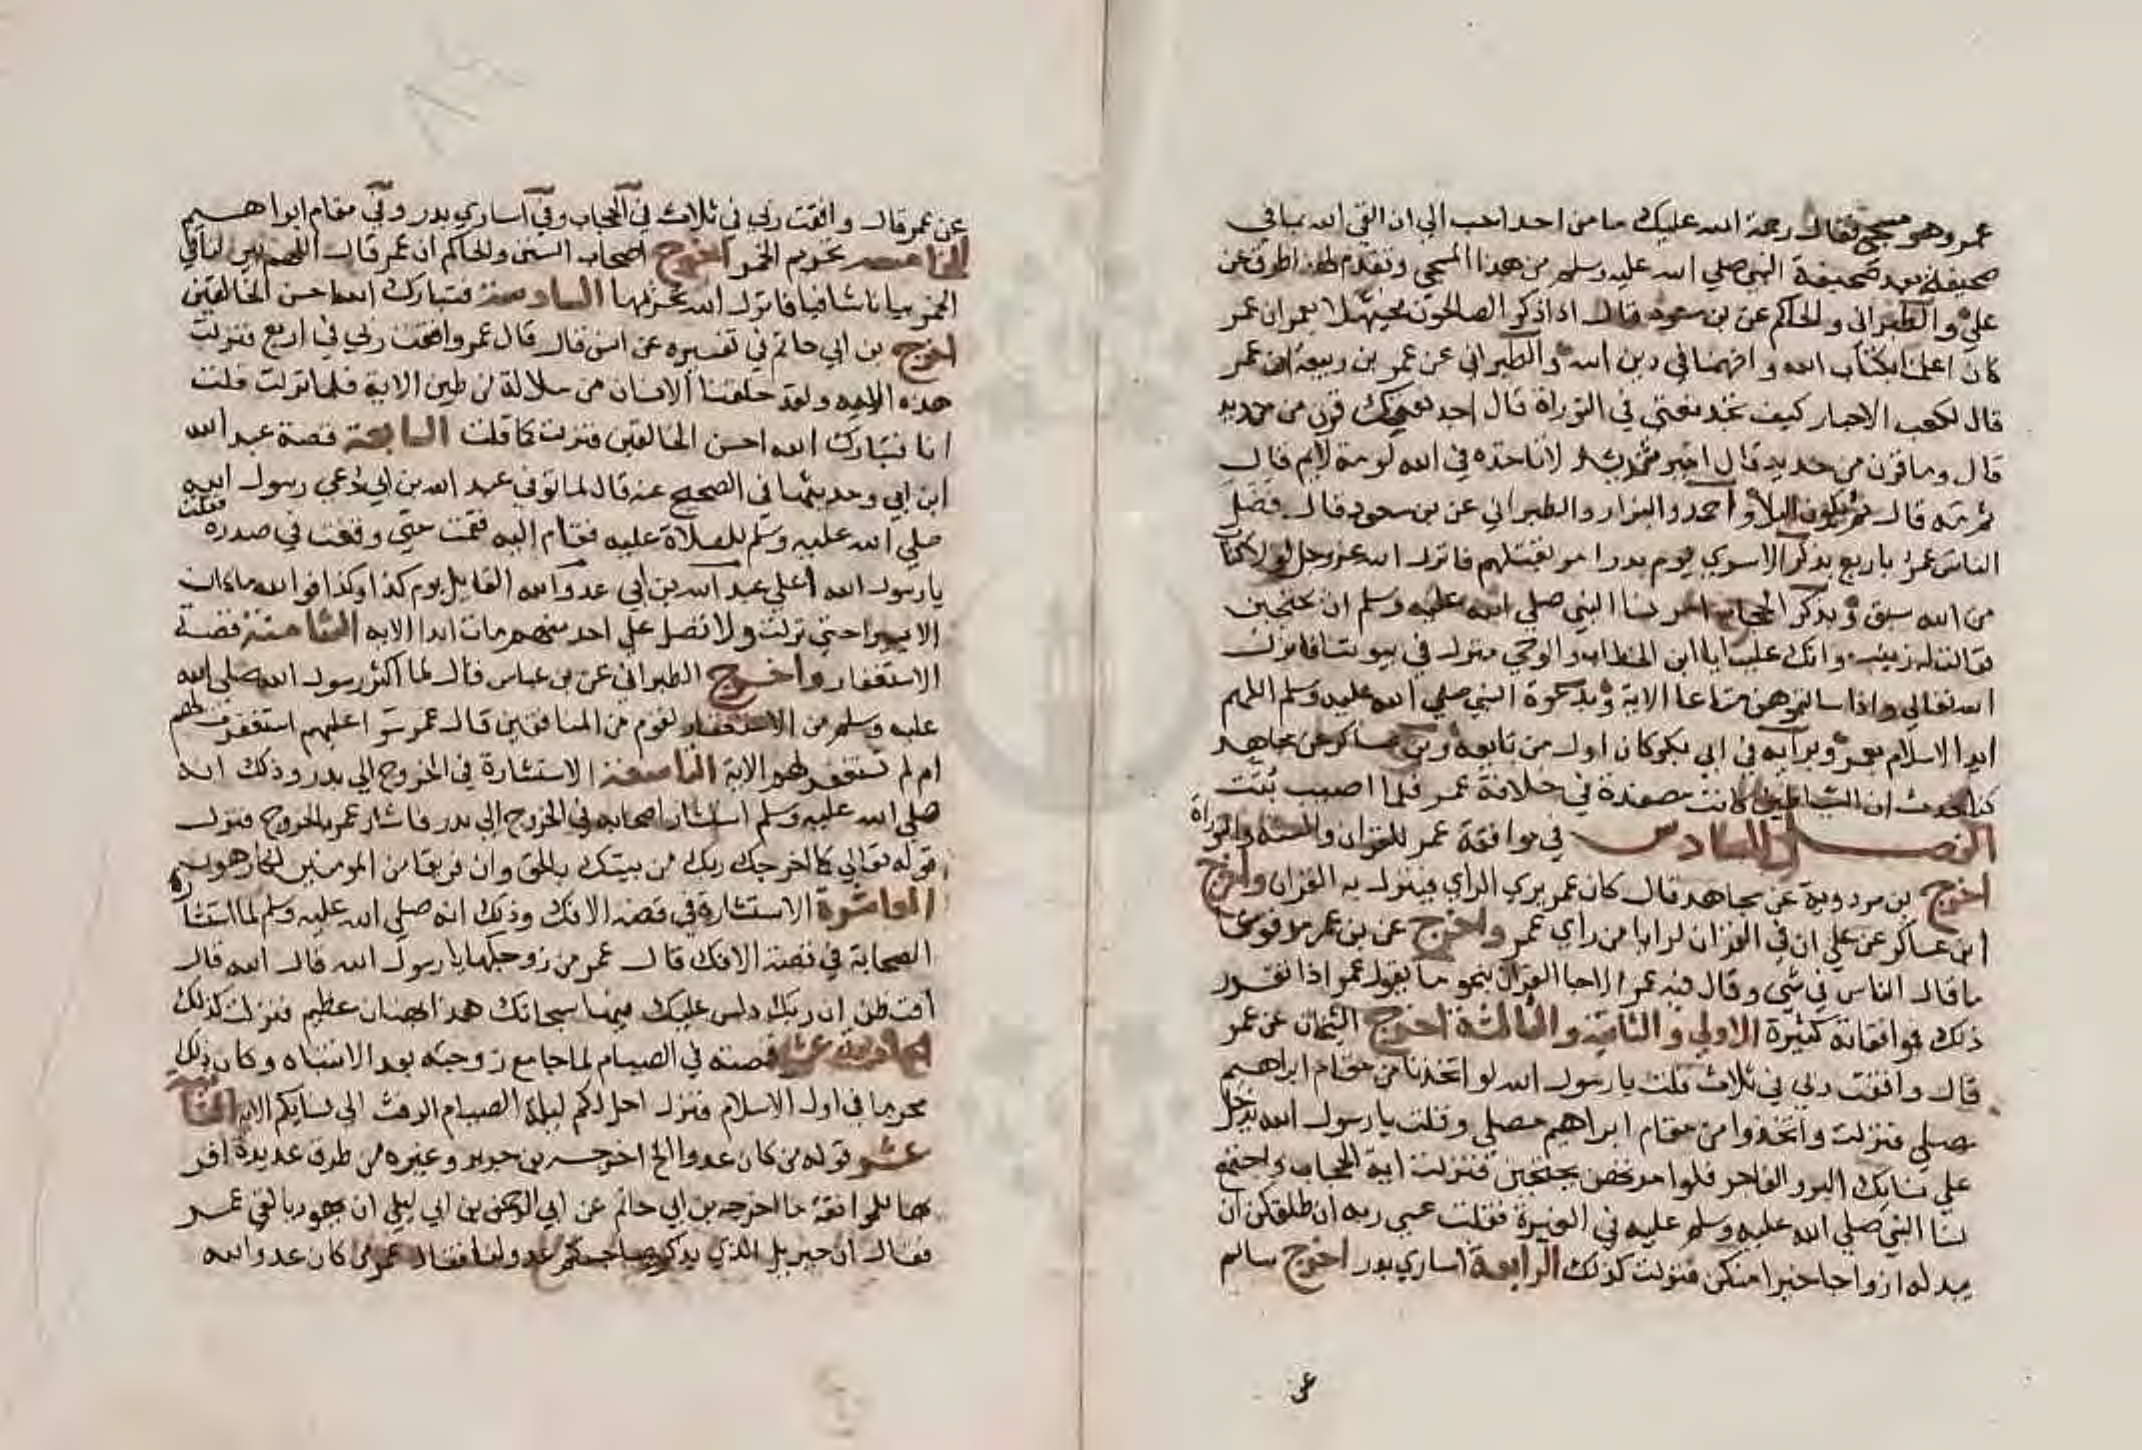 عمر وهو مسجى فقال رحمة الله عليك ما من احد احب الي ان القى الله بما في
صحيفته بعد صحيفة النبي صلي الله عليه وسلم من هذا المسجى وتقدم لهذا طرق عن
علي و الطبراني والحاكم عن بن مسعود قال اذا ذكر الصالحون فحيهلا بعمر ان عمر
كان اعلمنا بكتاب الله و افهمنا في دين الله و الطبراني عن عمر بن ربيعة ان عمر
قال لكعب الاحبار كيف تجد نعتي في التوراة قال اجد نعتك قرن من حديد
قال وما قرن من حديد قال امير شديد لا تاخذه في الله لومة لايم قال
ثم مه قال ثم يكون البلا و احمد والبزار والطبراني عن بن مسعود قال فضل
الناس عمر باربع بذكر الاسرى يوم بدر امر بقتلهم فانزل الله عز وجل لولا كتاب
من الله سبق و بذكر الحجاب امر نسا النبي صلي الله عليه وسلم ان يحتجبن
فقالت له زينب وانك علينا يا ابن الخطاب والوحي ينزل في بيوتنا فانزل
الله تعالي واذا سالتموهن متاعا الاية و بدعوة النبي صلي الله عليه وسلم اللهم
ايد الاسلام بعمر و برايه في ابي بكر كان اول من تابعه و بن عساكر عن مجاهد
كنا نحدث ان الشياطين كانت مصفدة في خلافة عمر فلما اصيب بثت
الفصل السادس في موافقة عمر للقران والسنة والتوراة
اخرج بن مردوية عن مجاهد قال كان عمر يري الراي فينزل به القران واخرج
ابن عساكر عن علي ان في القران لرايا من راي عمر واخرج عن بن عمر مرفوعا
ما قال الناس في شي و قال فيه عمر الا جا القران بنحو ما يقول عمر اذا تقرر
ذلك فموافقاته كثيرة الاولي و الثانية و الثالثة اخرج الشيخان عن عمر
قال وافقت ربي في ثلاث قلت يا رسول الله لو اتخذنا من مقام ابراهيم
مصلي فنزلت واتخذوا من مقام ابراهيم مصلي وقلت يا رسول الله يدخل
علي نسايك البر و الفاجر فلو امرتهن يحتجبن فنزلت اية الحجاب واجتمع
نسا النبي صلي الله عليه وسلم عليه في الغيرة فقلت عسي ربه ان طلقكن ان
يبدله ازواجا خيرا منكن فنزلت كذلك الرابعة اساري بدر اخرج سالم
عن
عن عمر قال وافقت ربي في ثلاث في الحجاب وفي اساري بدر وفي مقام ابراهيم
الخامسة تحريم الخمر اخرج اصحاب السنن والحاكم ان عمر قال اللهم بين لنا في
الخمر بيانا شافيا فانزل الله تحريمها السادسة فتبارك الله احسن الخالقين
اخرج بن ابي حاتم في تفسيره عن انس قال قال عمر وافقت ربي في اربع نزلت
هذه الاية ولقد خلقنا الانسان من سلالة من طين الاية فلما نزلت قلت
انا فتبارك الله احسن الخالقين فنزلت كما قلت السابعة قصة عبد الله
ابن ابي وحديثها في الصحيح عنه قال لما توفي عبد الله بن ابي دعي رسول الله
صلي الله عليه وسلم للصلاة عليه فقام اليه فقمت حتي وقفت في صدره فقلت
يا رسول الله اعلي عبد الله بن ابي عدو الله القايل يوم كذا وكذا فوالله ما كان
الا يسيرا حتي نزلت ولا تصل علي احد منهم مات ابدا الاية الثامنة قصة
الاستغفار واخرج الطبراني عن بن عباس قال لما اكثر رسول الله صلي الله
عليه وسلم من الاستغفار لقوم من المنافقين قال عمر سوا عليهم استغفرت لهم
ام لم تستغفر لهم الاية التاسعة الاستشارة في الخروج الي بدر وذلك انه
صلي الله عليه وسلم استشار اصحابه في الخروج الي بدر فاشار عمر بالخروج فنزل
قوله تعالي كما اخرجك ربك من بيتك بالحق وان فريقا من المومنين لكارهون
العاشرة الاستشارة في قصة الافك وذلك انه صلي الله عليه وسلم لما استشار
الصحابة في قصة الافك قال عمر من زوجكها يا رسول الله قال الله قال
افتظن ان ربك دلس عليك فيها سبحانك هذا بهتان عظيم فنزلت كذلك
الحادية عشر قصته في الصيام لما جامع زوجته بعد الانتباه وكان ذلك
محرما في اول الاسلام فنزل احل لكم ليلة الصيام الرفث الي نسايكم الاية الثانية
عشر قوله من كان عدوا الخ اخرجه بن جرير وغيره من طرق عديدة اقر
بها للموافقة ما اخرجه بن ابي حاتم عن ابي الرحمن بن ابي ليلي ان يهوديا لقي عمر
فقال ان جبريل الذي يذكره صاحبكم عدو لنا فقال عمر من كان عدوا لله